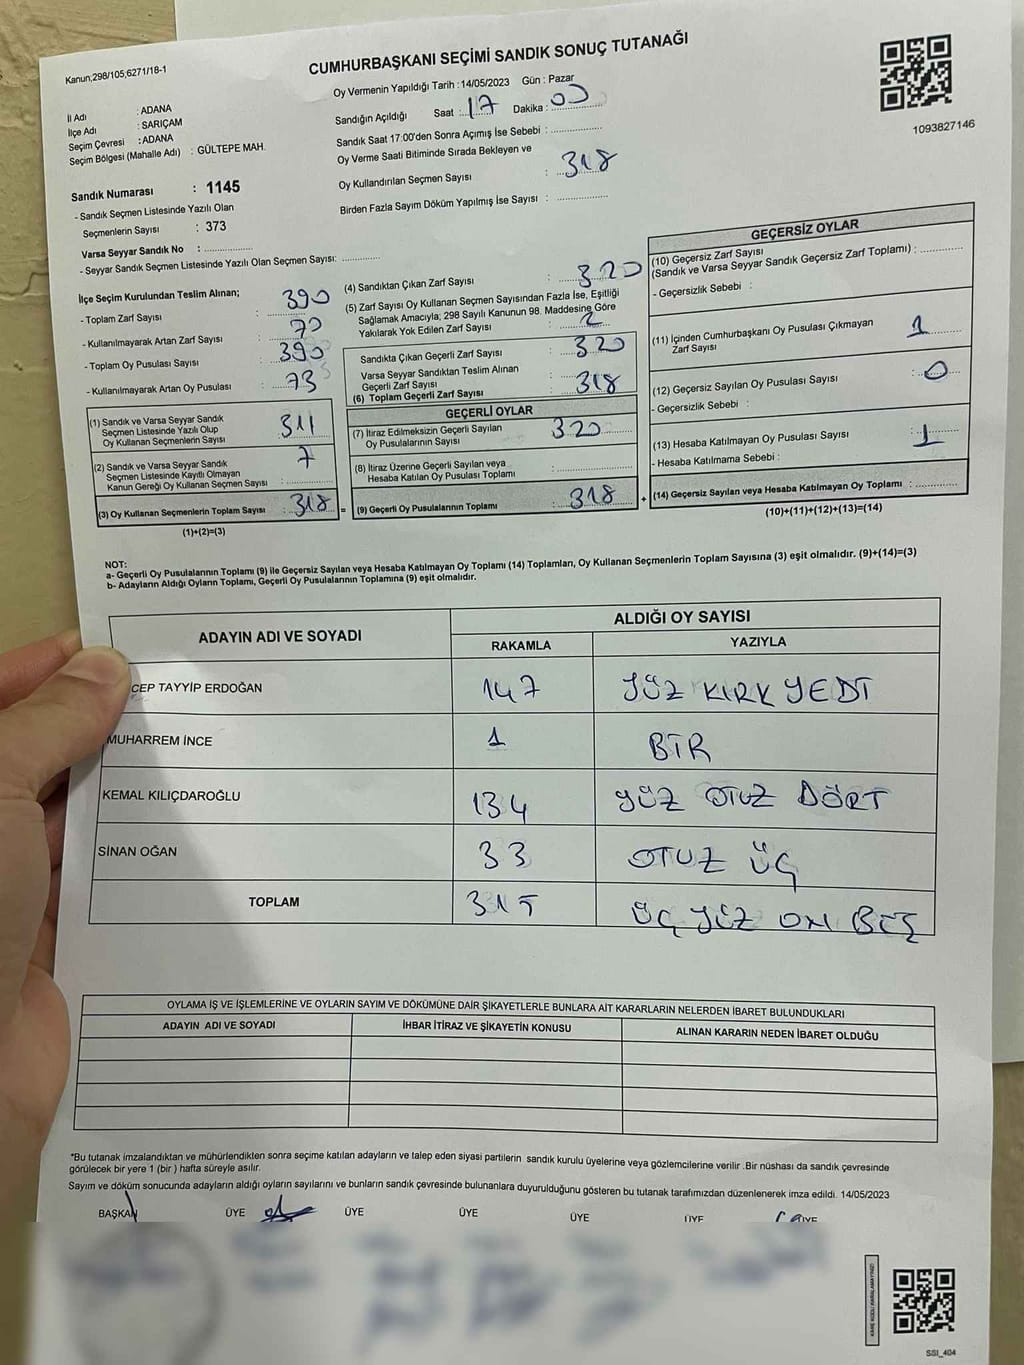 Kanun,298/105,6271/18-1
CUMHURBAŞKANI SEÇİMİ SANDIK SONUÇ TUTANAĞI
1093827146
İl Adı : ADANA
İlçe Adı : SARIÇAM
Seçim Çevresi : ADANA
Seçim Bölgesi (Mahalle Adı) : GÜLTEPE MAH.
Sandık Numarası : 1145
- Sandık Seçmen Listesinde Yazılı Olan
Seçmenlerin Sayısı : 373
Varsa Seyyar Sandık No : ..............
- Seyyar Sandık Seçmen Listesinde Yazılı Olan Seçmen Sayısı: ............
Oy Vermenin Yapıldığı Tarih : 14/05/2023 Gün : Pazar
Sandığın Açıldığı Saat : 17 Dakika : 00
Sandık Saat 17:00'den Sonra Açımış İse Sebebi : ..............
Oy Verme Saati Bitiminde Sırada Bekleyen ve
Oy Kullandırılan Seçmen Sayısı : 318
Birden Fazla Sayım Döküm Yapılmış İse Sayısı : ..............
İlçe Seçim Kurulundan Teslim Alınan;
- Toplam Zarf Sayısı : 390
- Kullanılmayarak Artan Zarf Sayısı : 70
- Toplam Oy Pusulası Sayısı : 390
- Kullanılmayarak Artan Oy Pusulası : 73
(1) Sandık ve Varsa Seyyar Sandık
Seçmen Listesinde Yazılı Olup
Oy Kullanan Seçmenlerin Sayısı 311
(2) Sandık ve Varsa Seyyar Sandık
Seçmen Listesinde Kayıtlı Olmayan
Kanun Gereği Oy Kullanan Seçmen Sayısı : 7
(3) Oy Kullanan Seçmenlerin Toplam Sayısı : 318
(1)+(2)=(3)
(4) Sandıktan Çıkan Zarf Sayısı : 320
(5) Zarf Sayısı Oy Kullanan Seçmen Sayısından Fazla İse, Eşitliği
Sağlamak Amacıyla; 298 Sayılı Kanunun 98. Maddesine Göre
Yakılarak Yok Edilen Zarf Sayısı : 2
Sandıkta Çıkan Geçerli Zarf Sayısı : 320
Varsa Seyyar Sandıktan Teslim Alınan
Geçerli Zarf Sayısı
(6) Toplam Geçerli Zarf Sayısı : 318
GEÇERLİ OYLAR
(7) İtiraz Edilmeksizin Geçerli Sayılan
Oy Pusulalarının Sayısı : 320
(8) İtiraz Üzerine Geçerli Sayılan veya
Hesaba Katılan Oy Pusulası Toplamı : ..............
= (9) Geçerli Oy Pusulalarının Toplamı : 318
GEÇERSİZ OYLAR
(10) Geçersiz Zarf Sayısı
(Sandık ve Varsa Seyyar Sandık Geçersiz Zarf Toplamı) : ............
- Geçersizlik Sebebi :
(11) İçinden Cumhurbaşkanı Oy Pusulası Çıkmayan
Zarf Sayısı : 1
(12) Geçersiz Sayılan Oy Pusulası Sayısı : 0
- Geçersizlik Sebebi :
(13) Hesaba Katılmayan Oy Pusulası Sayısı : 1
- Hesaba Katılmama Sebebi :
+ (14) Geçersiz Sayılan veya Hesaba Katılmayan Oy Toplamı : ............
(10)+(11)+(12)+(13)=(14)
NOT:
a- Geçerli Oy Pusulalarının Toplamı (9) ile Geçersiz Sayılan veya Hesaba Katılmayan Oy Toplamı (14) Toplamları, Oy Kullanan Seçmenlerin Toplam Sayısına (3) eşit olmalıdır. (9)+(14)=(3)
b- Adayların Aldığı Oyların Toplamı, Geçerli Oy Pusulalarının Toplamına (9) eşit olmalıdır.
ADAYIN ADI VE SOYADI ALDIĞI OY SAYISI
RAKAMLA YAZIYLA
CEP TAYYİP ERDOĞAN 147 YÜZ KIRK YEDİ
MUHARREM İNCE 1 BİR
KEMAL KILIÇDAROĞLU 134 YÜZ OTUZ DÖRT
SİNAN OĞAN 33 OTUZ ÜÇ
TOPLAM 315 ÜÇ YÜZ ON BEŞ
OYLAMA İŞ VE İŞLEMLERİNE VE OYLARIN SAYIM VE DÖKÜMÜNE DAİR ŞİKAYETLERLE BUNLARA AİT KARARLARIN NELERDEN İBARET BULUNDUKLARI
ADAYIN ADI VE SOYADI İHBAR İTİRAZ VE ŞİKAYETİN KONUSU ALINAN KARARIN NEDEN İBARET OLDUĞU
*Bu tutanak imzalandıktan ve mühürlendikten sonra seçime katılan adayların ve talep eden siyasi partilerin sandık kurulu üyelerine veya gözlemcilerine verilir .Bir nüshası da sandık çevresinde
görülecek bir yere 1 (bir ) hafta süreyle asılır.
Sayım ve döküm sonucunda adayların aldığı oyların sayılarını ve bunların sandık çevresinde bulunanlara duyurulduğunu gösteren bu tutanak tarafımızdan düzenlenerek imza edildi. 14/05/2023
BAŞKAN ÜYE ÜYE ÜYE ÜYE ÜYE ÜYE
KARE KODU KARALAMAYINIZ!
SSI_404